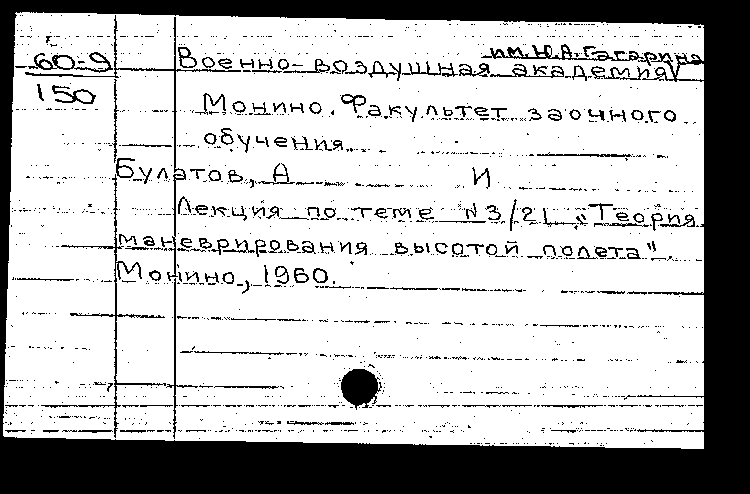 60-9
150
им. Ю.А. Гагарина
Военно-воздушная академия
Монино. Факультет заочного
обучения.
Булатов, А И
Лекция по теме N3/21 „Теория
маневрирования высотой полета".
Монино, 1960.